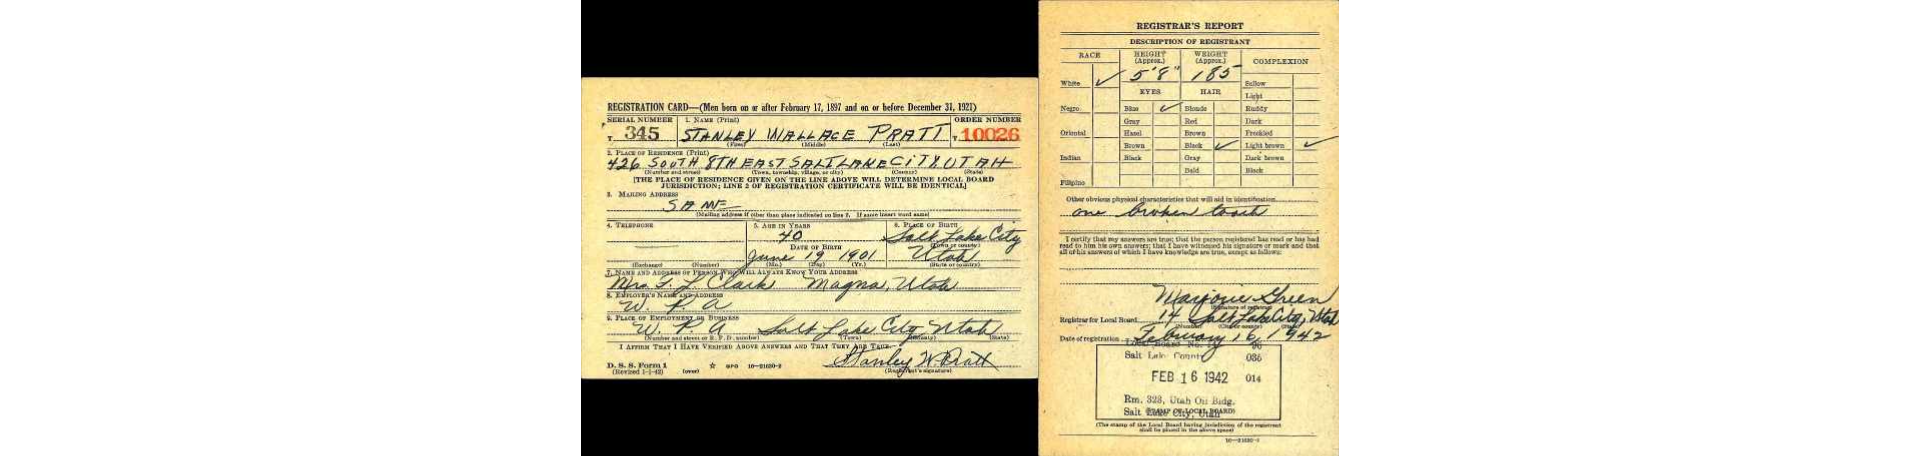 REGISTRATION CARD—(Men born on or after February 17, 1897 and on or before December 31, 1921)
SERIAL NUMBER 1. NAME (Print) ORDER NUMBER
T 345 STANLEY WALLACE PRATT T 10026
(First) (Middle) (Last)
2. PLACE OF RESIDENCE (Print)
426 SOUTH 8TH EAST SALT LAKE CITY UTAH
(Number and street) (Town, township, village, or city) (County) (State)
[THE PLACE OF RESIDENCE GIVEN ON THE LINE ABOVE WILL DETERMINE LOCAL BOARD
JURISDICTION; LINE 2 OF REGISTRATION CERTIFICATE WILL BE IDENTICAL]
3. MAILING ADDRESS
SAME
[Mailing address if other than place indicated on line 2. If same insert word same]
4. TELEPHONE 5. AGE IN YEARS 6. PLACE OF BIRTH
40 Salt Lake City
DATE OF BIRTH (Town or county)
June 19 1901 Utah
(Exchange) (Number) (Mo.) (Day) (Yr.) (State or country)
7. NAME AND ADDRESS OF PERSON WHO WILL ALWAYS KNOW YOUR ADDRESS
Mrs. F. L. Clark Magna, Utah
8. EMPLOYER'S NAME AND ADDRESS
W. P. A
9. PLACE OF EMPLOYMENT OR BUSINESS
W. P. A Salt Lake City Utah
(Number and street or R. F. D. number) (Town) (County) (State)
I AFFIRM THAT I HAVE VERIFIED ABOVE ANSWERS AND THAT THEY ARE TRUE.
Stanley W. Pratt
D. S. S. Form 1 (Registrant's signature)
(Revised 1-1-42) (over) ☆ GPO 16—21630-2
REGISTRAR'S REPORT
DESCRIPTION OF REGISTRANT
RACE HEIGHT (Approx.) WEIGHT (Approx.) COMPLEXION
White ✓ 5'8" 185 Sallow
EYES HAIR Light
Negro Blue ✓ Blonde Ruddy
Gray Red Dark
Oriental Hazel Brown Freckled
Brown Black ✓ Light brown ✓
Indian Black Gray Dark brown
Bald Black
Filipino
Other obvious physical characteristics that will aid in identification
one broken tooth
I certify that my answers are true; that the person registered has read or has had
read to him his own answers; that I have witnessed his signature or mark and that
all of his answers of which I have knowledge are true, except as follows:
Marjorie Green
(Signature of registrar)
Registrar for Local Board 14 Salt Lake City, Utah
Date of registration February 16, 1942
Salt Lake County 035
FEB 16 1942 014
Rm. 323, Utah Oil Bldg.
Salt Lake City, Utah
(STAMP OF LOCAL BOARD)
(The stamp of the Local Board having jurisdiction of the registrant
shall be placed in the above space)